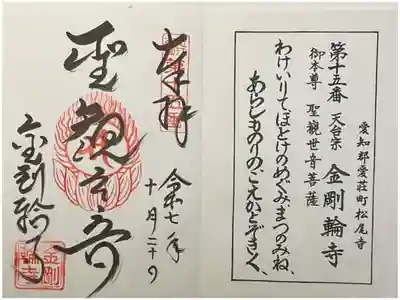 愛知郡愛荘町松尾寺
第十五番 天台宗 金剛輪寺
御本尊 聖観世音菩薩
わけいりてほとけのめぐみまつのみね、
あらしものりのこえかとぞきく、
奉拝
令和七年
十月二十日
聖観音
金剛輪寺
金剛
輪寺